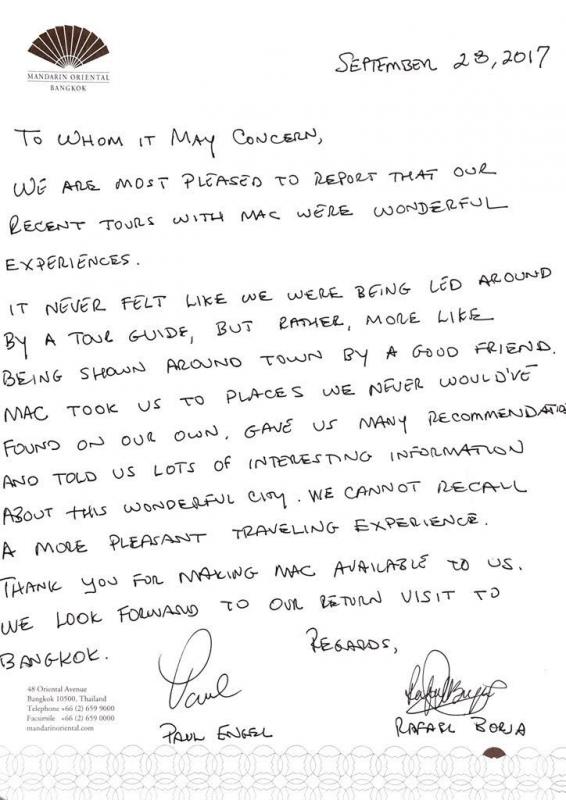 MANDARIN ORIENTAL
BANGKOK
SEPTEMBER 28, 2017
TO WHOM IT MAY CONCERN,
WE ARE MOST PLEASED TO REPORT THAT OUR
RECENT TOURS WITH MAC WERE WONDERFUL
EXPERIENCES.
IT NEVER FELT LIKE WE WERE BEING LED AROUND
BY A TOUR GUIDE, BUT RATHER, MORE LIKE
BEING SHOWN AROUND TOWN BY A GOOD FRIEND.
MAC TOOK US TO PLACES WE NEVER WOULD'VE
FOUND ON OUR OWN, GAVE US MANY RECOMMENDATIO
AND TOLD US LOTS OF INTERESTING INFORMATION
ABOUT THIS WONDERFUL CITY. WE CANNOT RECALL
A MORE PLEASANT TRAVELING EXPERIENCE.
THANK YOU FOR MAKING MAC AVAILABLE TO US.
WE LOOK FORWARD TO OUR RETURN VISIT TO
BANGKOK.
REGARDS,
Paul
PAUL ENGEL
RAFAEL BORJA
48 Oriental Avenue
Bangkok 10500, Thailand
Telephone +66 (2) 659 9000
Facsimile +66 (2) 659 0000
mandarinoriental.com